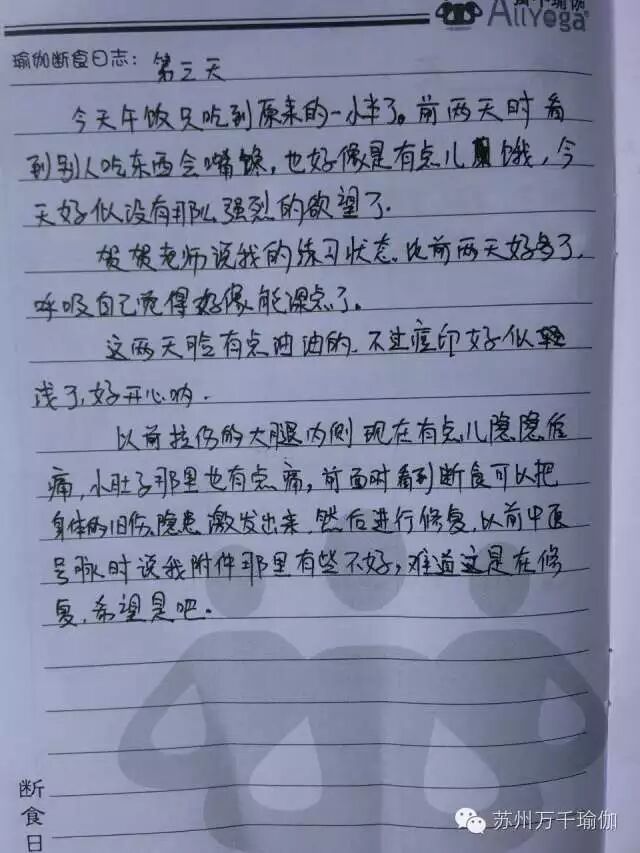 万千瑜伽
AllYoga
瑜伽断食日志：第三天
今天午饭只吃到原来的一小半了。前两天时看
到别人吃东西会嘴馋，也好像是有点儿饿，今
天好似没有那么强烈的欲望了.
贺贺老师说我的练习状态比前两天好多了，
呼吸自己觉得好像能深点了。
这两天脸有点油油的，不过痘印好似轻
浅了，好开心呐.
以前拉伤的大腿内侧现在有点儿隐隐作
痛，小肚子那里也有点痛，前面时看到断食可以把
身体的旧伤隐患激发出来，然后进行修复，以前中医
号脉时说我附件那里有些不好，难道这是在修
复，希望是吧.
断食日
苏州万千瑜伽